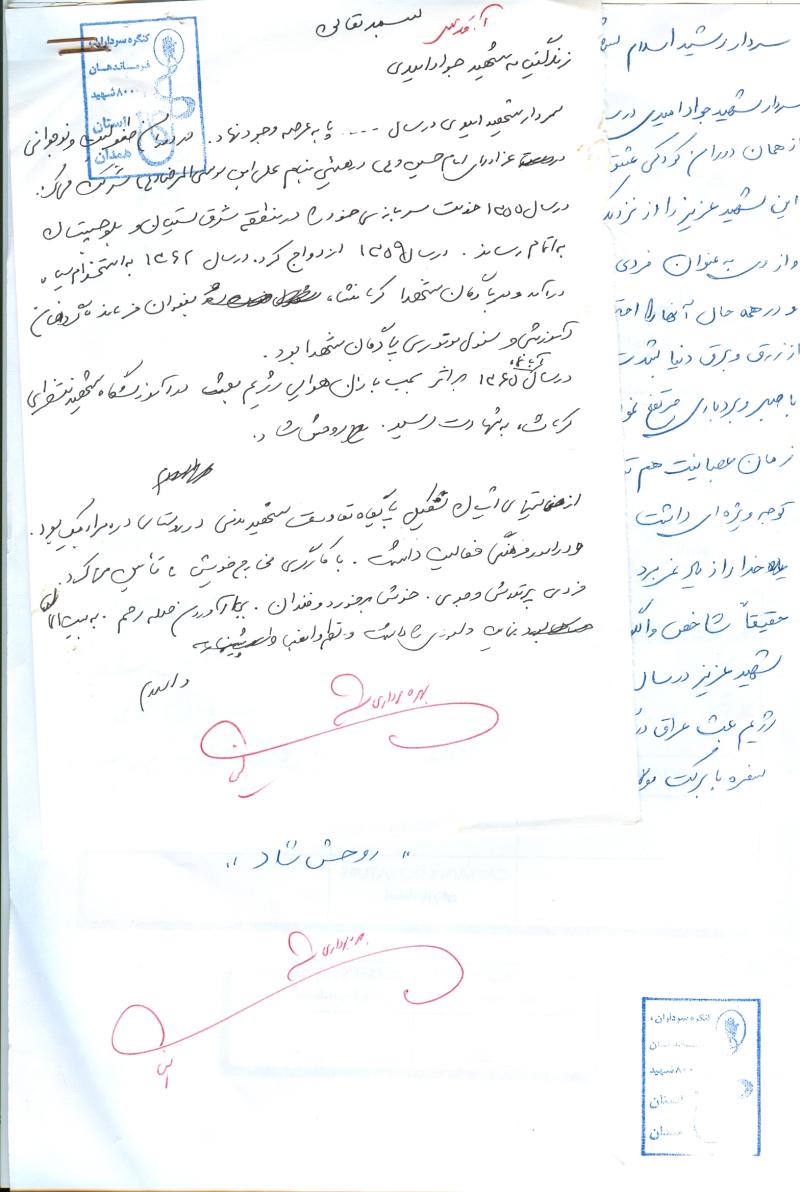 بسمه تعالی
زندگینامه شهید جواد امیدی
سردار شهید امیدی در سال .... پا به عرصه وجود نهاد. در دوران طفولیت و نوجوانی
در عزاداری امام حسین و در هیئتی بنام علی ابن موسی الرضا شرکت می‌کرد.
در سال ۱۳۵۵ خدمت سربازی خود را در منطقه شرق سیستان و بلوچستان
به اتمام رساند. در سال ۱۳۵۹ ازدواج کرد. در سال ۱۳۶۲ به استخدام سپاه
درآمد و در پادگان شهدا کرمانشاه بعنوان فرمانده گردان
آموزشی و مسئول موتوری پادگان شهدا بود.
در سال ۱۳۶۵ بر اثر بمب باران هوایی رژیم بعث در آموزشگاه شهید
کرمانشاه به شهادت رسید. روحش شاد.
والسلام
از فعالیتهای ایشان تشکیل پایگاه مقاومت شهید مدنی در روستای بود.
و در امور فرهنگی فعالیت داشت. با کارگری مخارج خویش را تأمین می‌کرد.
فردی پرتلاش و جدی. خوش برخورد و خندان. بجا آوردن صله رحم.
والسلام
بهره برداری شد
سردار رشید اسلام
سردار شهید جواد امیدی در س
از همان دوران کودکی عشق
این شهید عزیز را از نزدیک
و از وی به عنوان فردی
و در همه حال آنها را
از زرق و برق دنیا بشدت
با صبر و بردباری مرتفع
زمان عصبانیت هم
توجه ویژه ای داشت
یاد خدا را از یاد نمی برد
حقیقتاً شاخص و الگو
شهید عزیز در سال
رژیم بعث عراق در
سفره با برکت
" روحش شاد "
بهره برداری شد
کنگره سرداران،
فرماندهان
۸۰۰۰ شهید
استان
همدان
کنگره سرداران،
شهید
استان
همدان